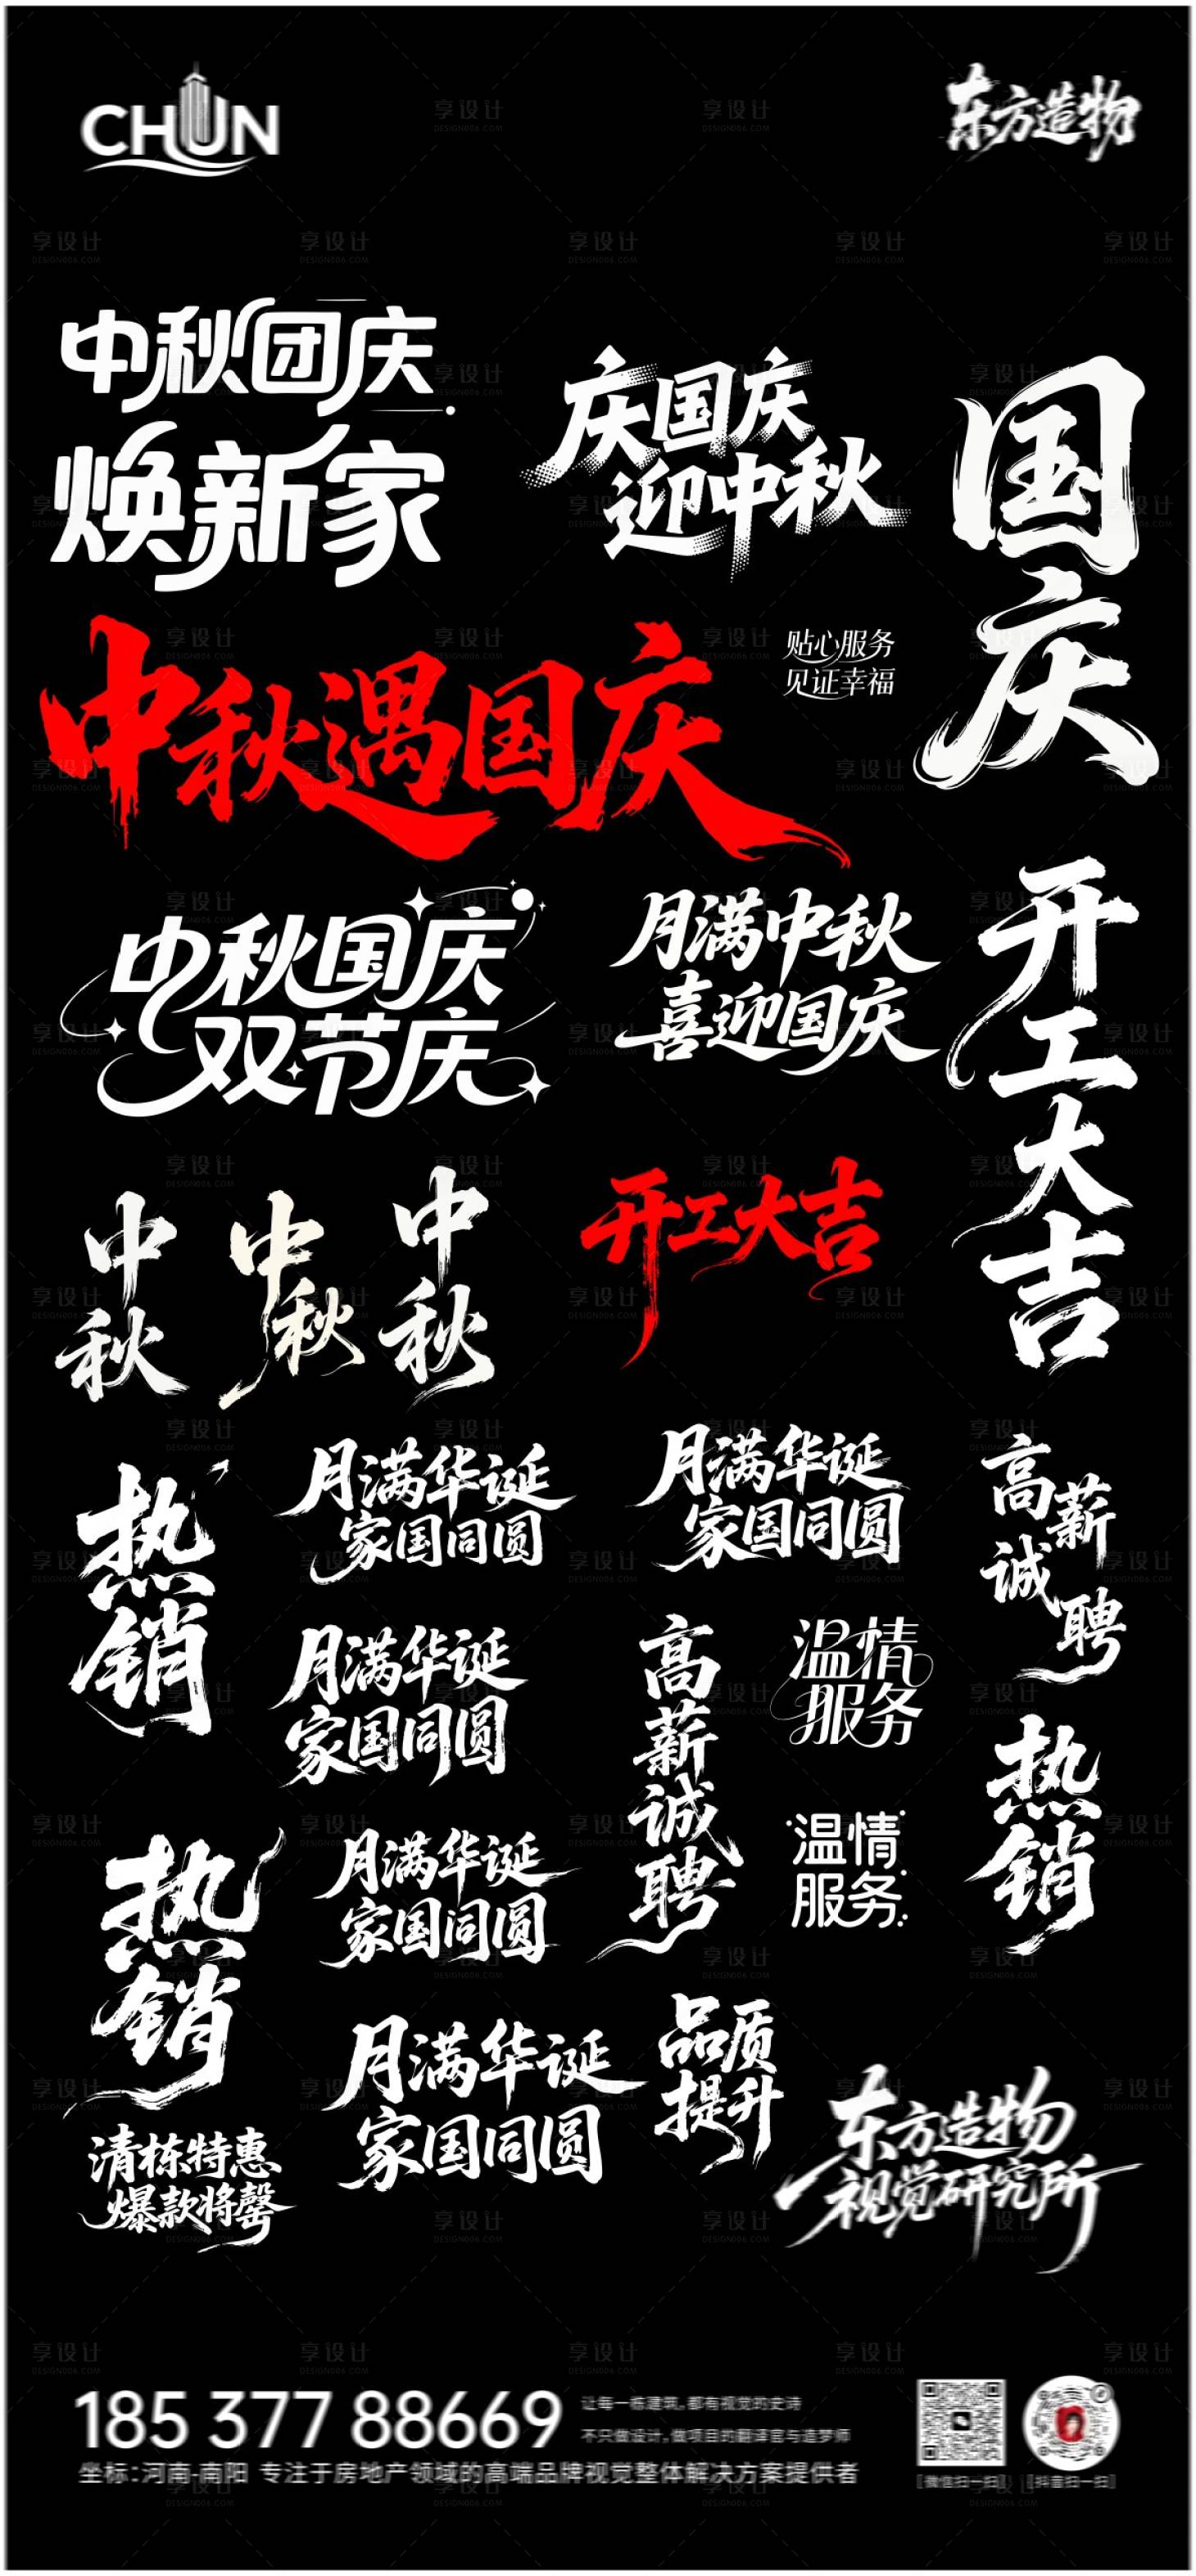 CHUN
东方造物
中秋团庆
焕新家
庆国庆
迎中秋
国庆
中秋遇国庆
贴心服务
见证幸福
中秋国庆
双节庆
月满中秋
喜迎国庆
开工大吉
中秋
中秋
中秋
开工大吉
热销
月满华诞
家国同圆
月满华诞
家国同圆
高薪
诚聘
月满华诞
家国同圆
高薪诚聘
温情
服务
热销
热销
月满华诞
家国同圆
温情
服务
月满华诞
家国同圆
品质
提升
清栋特惠
爆款将罄
东方造物
视觉研究所
185 377 88669
让每一栋建筑,都有视觉的史诗
不只做设计,做项目的翻译官与造梦师
坐标:河南-南阳 专注于房地产领域的高端品牌视觉整体解决方案提供者
[微信扫一扫]
[抖音扫一扫]
享设计
DESIGN006.COM